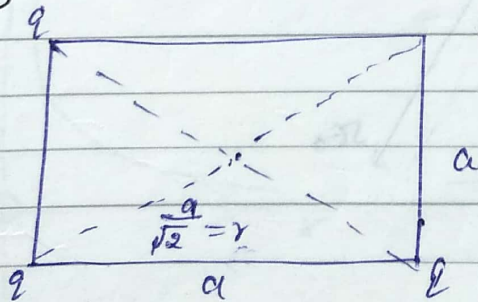 q
a
a/√2 = r
q a q